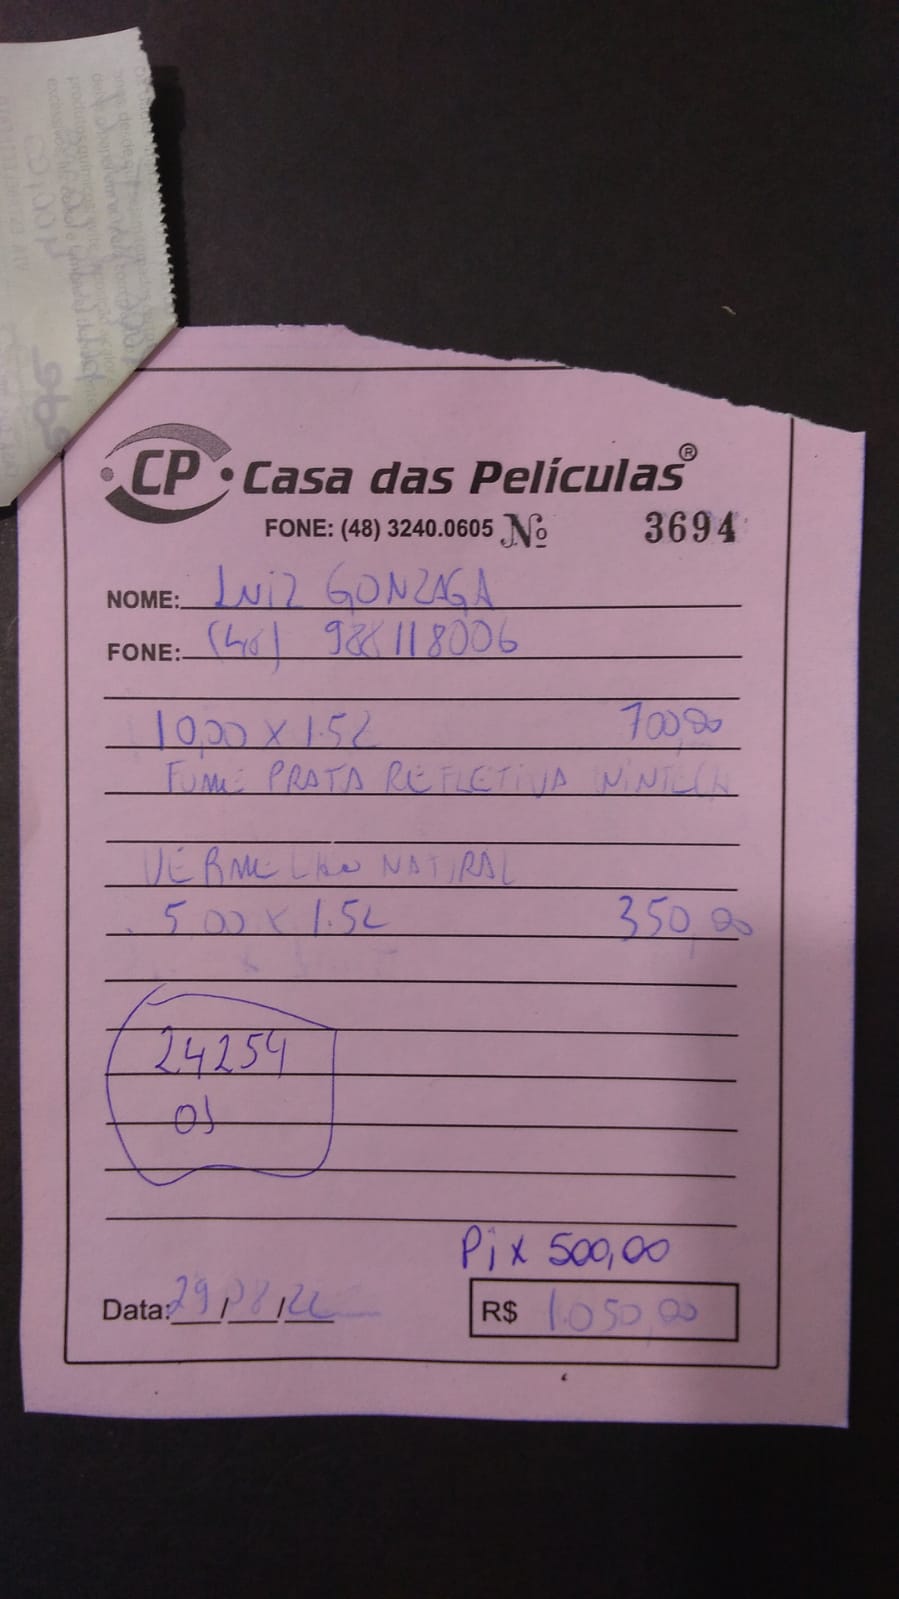 CP Casa das Películas®
FONE: (48) 3240.0605 Nº 3694
NOME: LUIZ GONZAGA
FONE: (48) 988118006
10,00 x 1.52 700,00
FUME PRATA REFLETIVA WINTECH
VERMELHO NATURAL
5,00 x 1.52 350,00
24254
OS
Pix 500,00
Data: 29/08/22 R$ 1.050,00